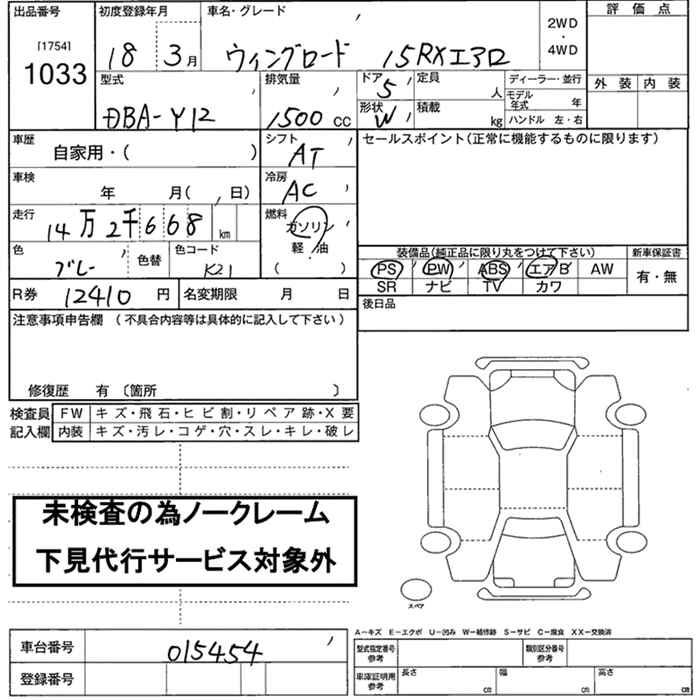 出品番号 [1754] 1033
初度登録年月 18 3月
車名・グレード ウィングロード 15RXエアロ
2WD・4WD
評価点
外装 内装
型式 DBA-Y12
排気量 1500cc
ドア 5
形状 W
定員 人
積載 kg
ディーラー・並行
モデル年式 年
ハンドル 左・右
車歴 自家用・( )
シフト AT
車検 年 月( , 日)
冷房 AC
走行 14万2千668km
燃料 ガソリン
軽油
( )
色 グレー 色替
色コード K21
R券 12410円
名変期限 月 日
セールスポイント(正常に機能するものに限ります)
装備品(純正品に限り丸をつけて下さい)
PS PW ABS エアB AW
SR ナビ TV カワ
新車保証書
有・無
後日品
注意事項申告欄 (不具合内容等は具体的に記入して下さい)
修復歴 有 〔箇所 〕
検査員記入欄
FW キズ・飛石・ヒビ割・リペア跡・X要
内装 キズ・汚レ・コゲ・穴・スレ・キレ・破レ
未検査の為ノークレーム
下見代行サービス対象外
スペア
車台番号 015454
登録番号
A-キズ E-エクボ U-凹み W-補修跡 S-サビ C-腐食 XX-交換済
型式指定番号 参考
類別区分番号 参考
車庫証明用 参考
長さ cm
幅 cm
高さ cm